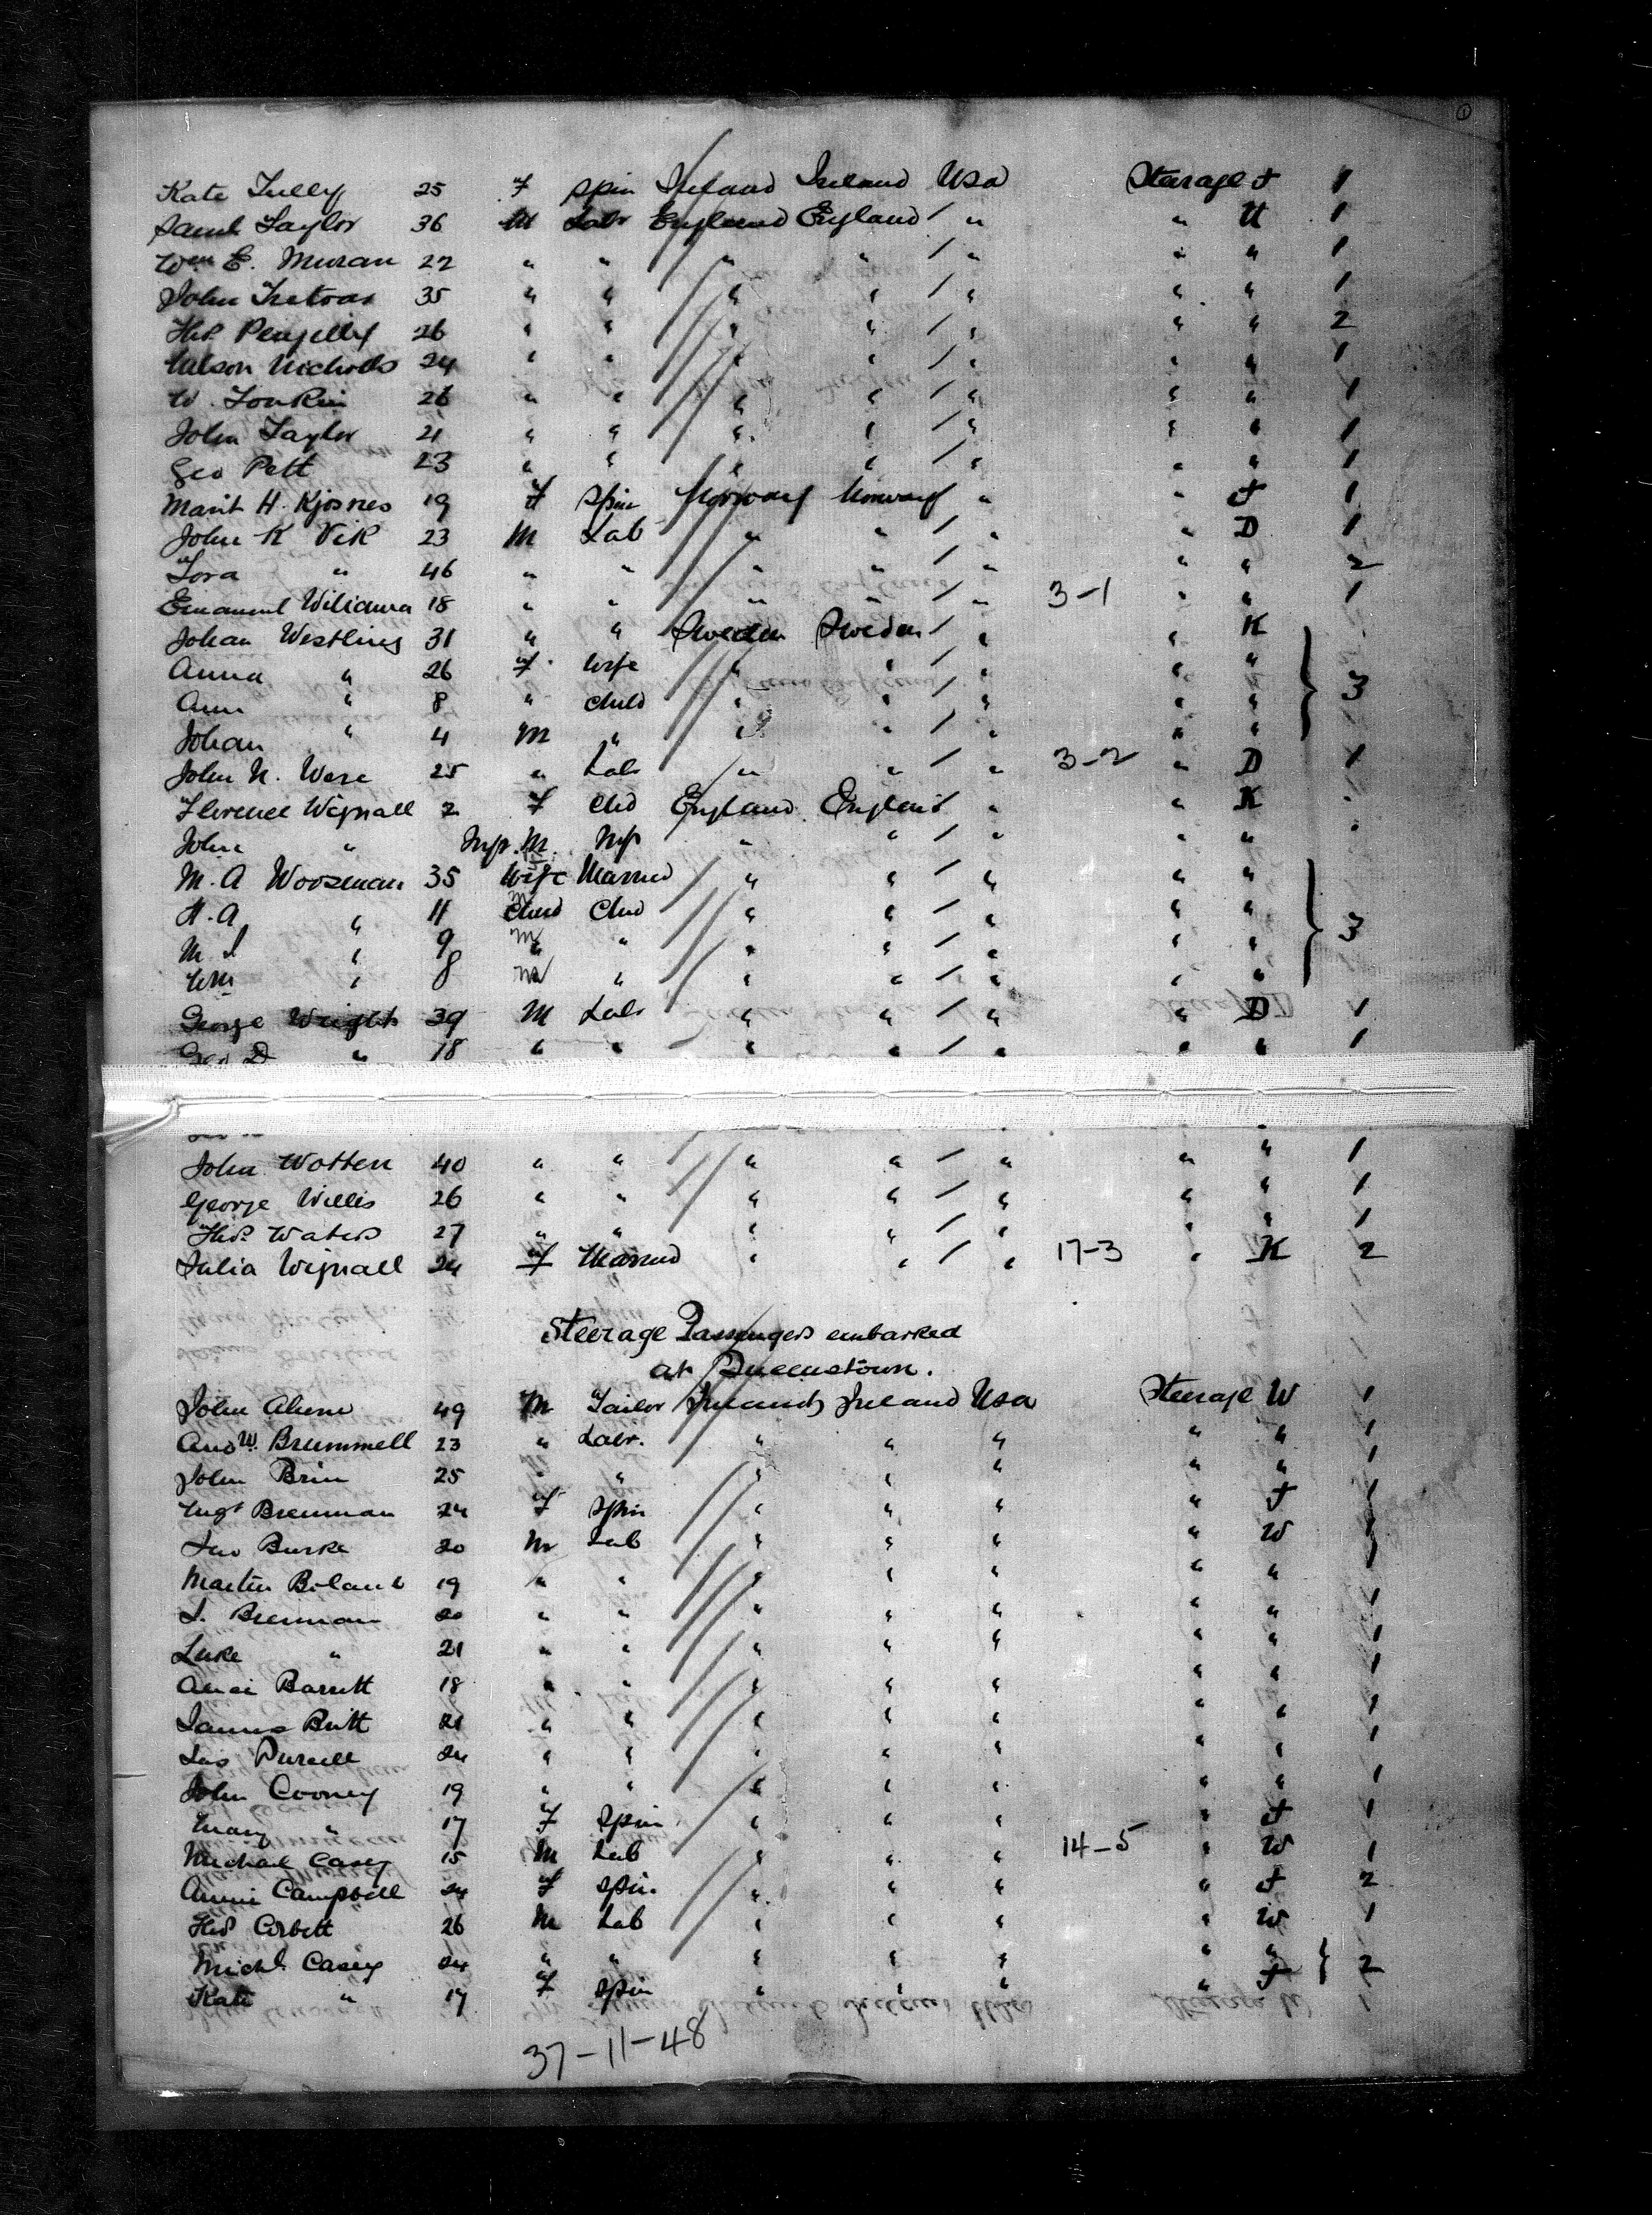 Kate Tully 25 F Spin Ireland Ireland Usa Steerage F 1
Saml Taylor 36 M Labr England England / " " U 1
Wm E. Muran 22 " " " " / " " " 1
John 35 " " " " / " " " 1
Thos. Pengelly 26 " " " " / " " " 2
Nicholls 24 " " " " / " " " 1
W. Tonkin 26 " " " " / " " " 1
John Taylor 21 " " " " / " " " 1
Geo Pett 23 " " " " / " " " 1
Marit H. Kjosnes 19 F Spin Norway Norway " " F 1
John K Vik 23 M Lab " " / " " D 1
Tora " 46 " " " " / " " " 2
Emanuel 18 " " " " / " 3-1 " " 1
Johan Westling 31 " " Sweden Sweden / " " K
Anna " 26 F. Wife " " / " " "
Ann " 8 " Child " " / " " " } 3
Johan " 4 M " " " / " " "
John N. Were 25 " Labr " " / " 3-2 " D 1
Florence Wignall 2 F Chd England England " " K "
John " Inf. M. Inf " " / " " " "
M. A Woozeman 35 Wife Married " " / " " "
H. A " 11 Child m Chd " " / " " "
M. J " 9 " m " " " / " " " } 3
Wm " 8 m " " " / " " "
George Wright 39 M Labr " " / " " D 1
Geo D " 18 " " " " / " " " 1
John Wotten 40 " " " " / " " " 1
George Willis 26 " " " " / " " " 1
Thos. Waters 27 " " " " / " " " 1
Julia Wignall 24 F Married " " / " 17-3 " K 2
Steerage Passengers embarked
at Queenstown.
John Ahern 49 M Tailor Ireland Ireland Usa Steerage W 1
Andw. Brummell 23 " Labr. " " " " " 1
John Brin 25 " " " " " " " 1
Mgt Brennan 24 F Spin " " " " F 1
Burke 20 M Lab " " " " W 1
Martin Boland 19 " " " " " " "
J. Brennan 20 " " " " " " " 1
Luke " 21 " " " " " " " 1
Barrett 18 " " " " " " " 1
James Britt 21 " " " " " " " 1
Jas Purcell 24 " " " " " " " 1
John Cooney 19 " " " " " " " 1
Mary " 17 F Spin " " " " F 1
Michael Casey 15 M Lab " " " 14-5 " W 1
Annie Campbell 24 F Spin. " " " " F 2
Thos Corbett 26 M Lab " " " " W 1
Michl. Casey 24 " " " " " " " } 2
Kate " 17 F Spin " " " " F
37-11-48